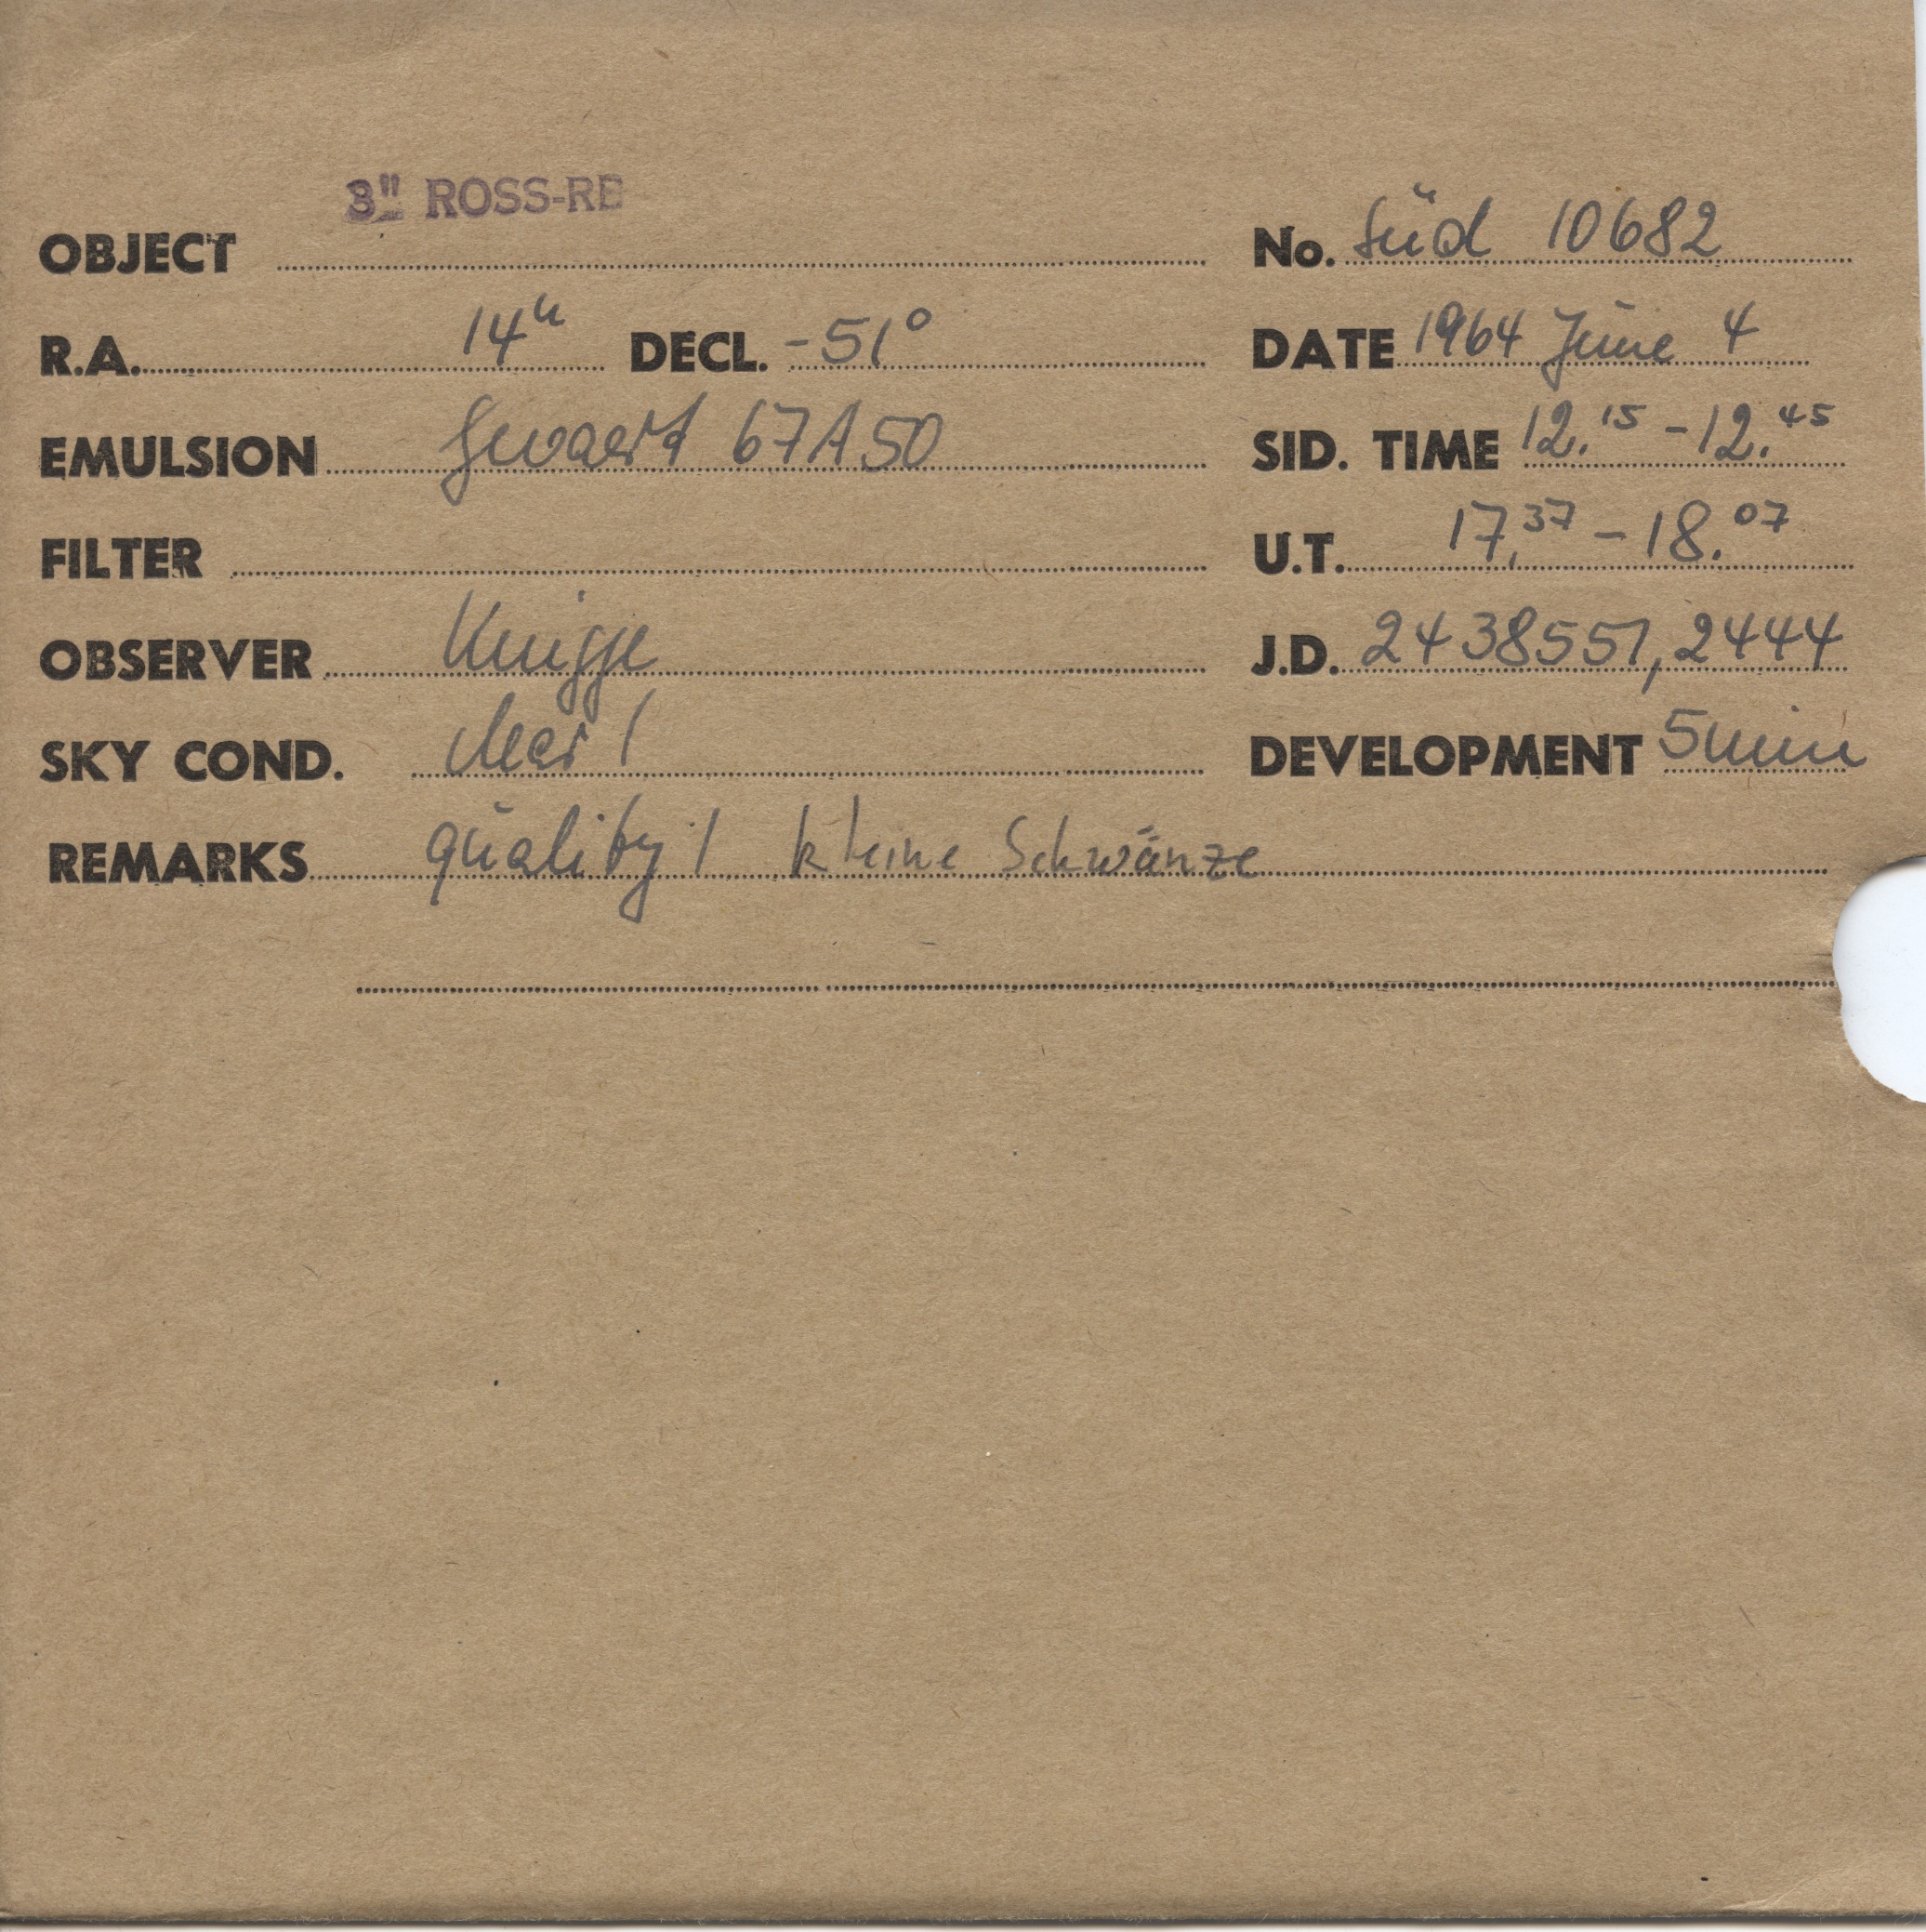 3" ROSS-RB
OBJECT No. Süd 10682
R.A. 14h DECL. -51° DATE 1964 June 4
EMULSION Gevaert 67A50 SID. TIME 12.15 - 12.45
FILTER U.T. 17.37 - 18.07
OBSERVER Knigge J.D. 2438551,2444
SKY COND. clear 1 DEVELOPMENT 5 min
REMARKS quality 1 kleine Schwänze